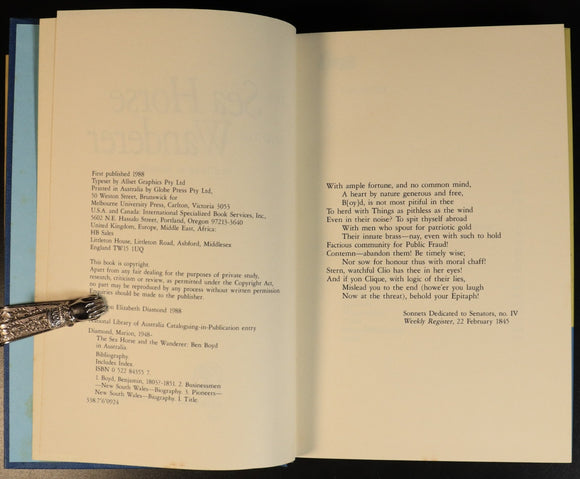 Sea Horse
Wanderer
First published 1988
Typeset by Allset Graphics Pty Ltd
Printed in Australia by Globe Press Pty Ltd,
50 Weston Street, Brunswick for
Melbourne University Press, Carlton, Victoria 3053
U.S.A. and Canada: International Specialized Book Services, Inc.,
5602 N.E. Hassalo Street, Portland, Oregon 97213-3640
United Kingdom, Europe, Middle East, Africa:
HB Sales
Littleton House, Littleton Road, Ashford, Middlesex
England TW15 1UQ
This book is copyright.
Apart from any fair dealing for the purposes of private study,
research, criticism or review, as permitted under the Copyright Act,
no part may be reproduced by any process without written permission.
Enquiries should be made to the publisher.
Elizabeth Diamond 1988
National Library of Australia Cataloguing-in-Publication entry
Diamond, Marion, 1948-
The Sea Horse and the Wanderer: Ben Boyd
in Australia
Bibliography.
Includes Index.
ISBN 0 522 84355 7.
1. Boyd, Benjamin, 1803?-1851. 2. Businessmen
—New South Wales—Biography. 3. Pioneers—
—New South Wales—Biography. I. Title.
338.7'6'0924
With ample fortune, and no common mind,
A heart by nature generous and free,
B[oy]d, is not most pitiful in thee
To herd with Things as pithless as the wind
Even in their noise? To spit thyself abroad
With men who spout for patriotic gold
Their innate brass—nay, even with such to hold
Factious community for Public Fraud!
Contemn—abandon them! Be timely wise;
Nor sow for honour thus with moral chaff!
Stern, watchful Clio has thee in her eyes!
And if yon Clique, with logic of their lies,
Mislead you to the end (howe'er you laugh
Now at the threat), behold your Epitaph!
Sonnets Dedicated to Senators, no. IV
Weekly Register, 22 February 1845